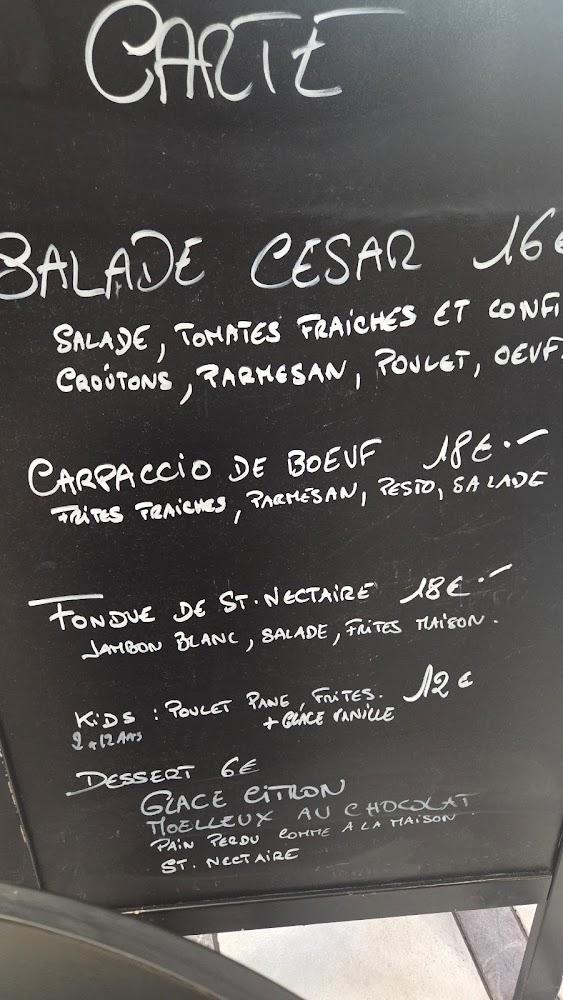 CARTE
SALADE CESAR 16€
SALADE, TOMATES FRAÎCHES ET CONFI
CROÛTONS, PARMESAN, POULET, OEUF.
CARPACCIO DE BOEUF 18€.-
FRITES FRAICHES, PARMESAN, PESTO, SALADE
FONDUE DE ST. NECTAIRE 18€.-
JAMBON BLANC, SALADE, FRITES MAISON.
KIDS : POULET PANE FRITES. 12€
+ GLACE VANILLE
12 ANS
DESSERT 6€
GLACE CITRON
MOELLEUX AU CHOCOLAT
PAIN PERDU COMME A LA MAISON
ST. NECTAIRE